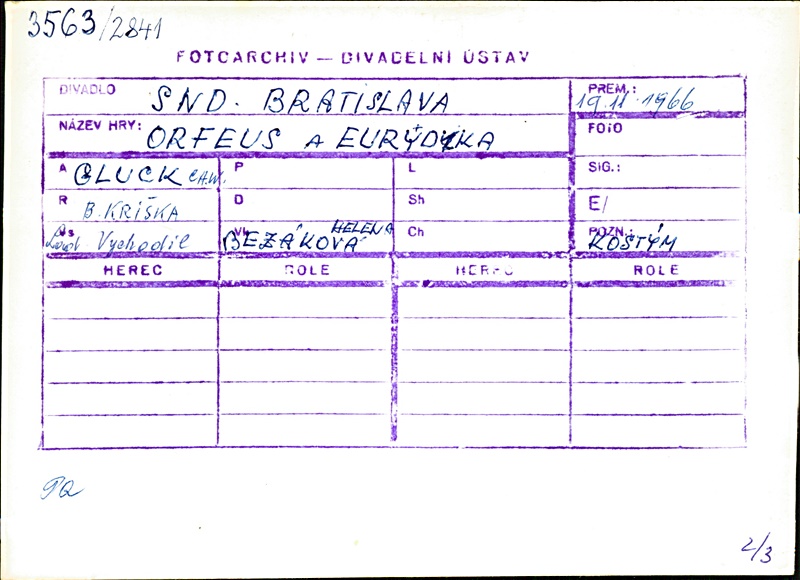 3563/2841
FOTOARCHIV — DIVADELNÍ ÚSTAV
DIVADLO SND. BRATISLAVA
PREM.: 19.11.1966
NÁZEV HRY: ORFEUS A EURÝDIKA
FOTO
A GLUCK CH.W. P L SIG.:
R B. KRIŠKA D Sh E/
Vychodil BEZÁKOVÁ HELENA Ch POZN.: KOSTÝM
HEREC ROLE HEREC ROLE
2/3